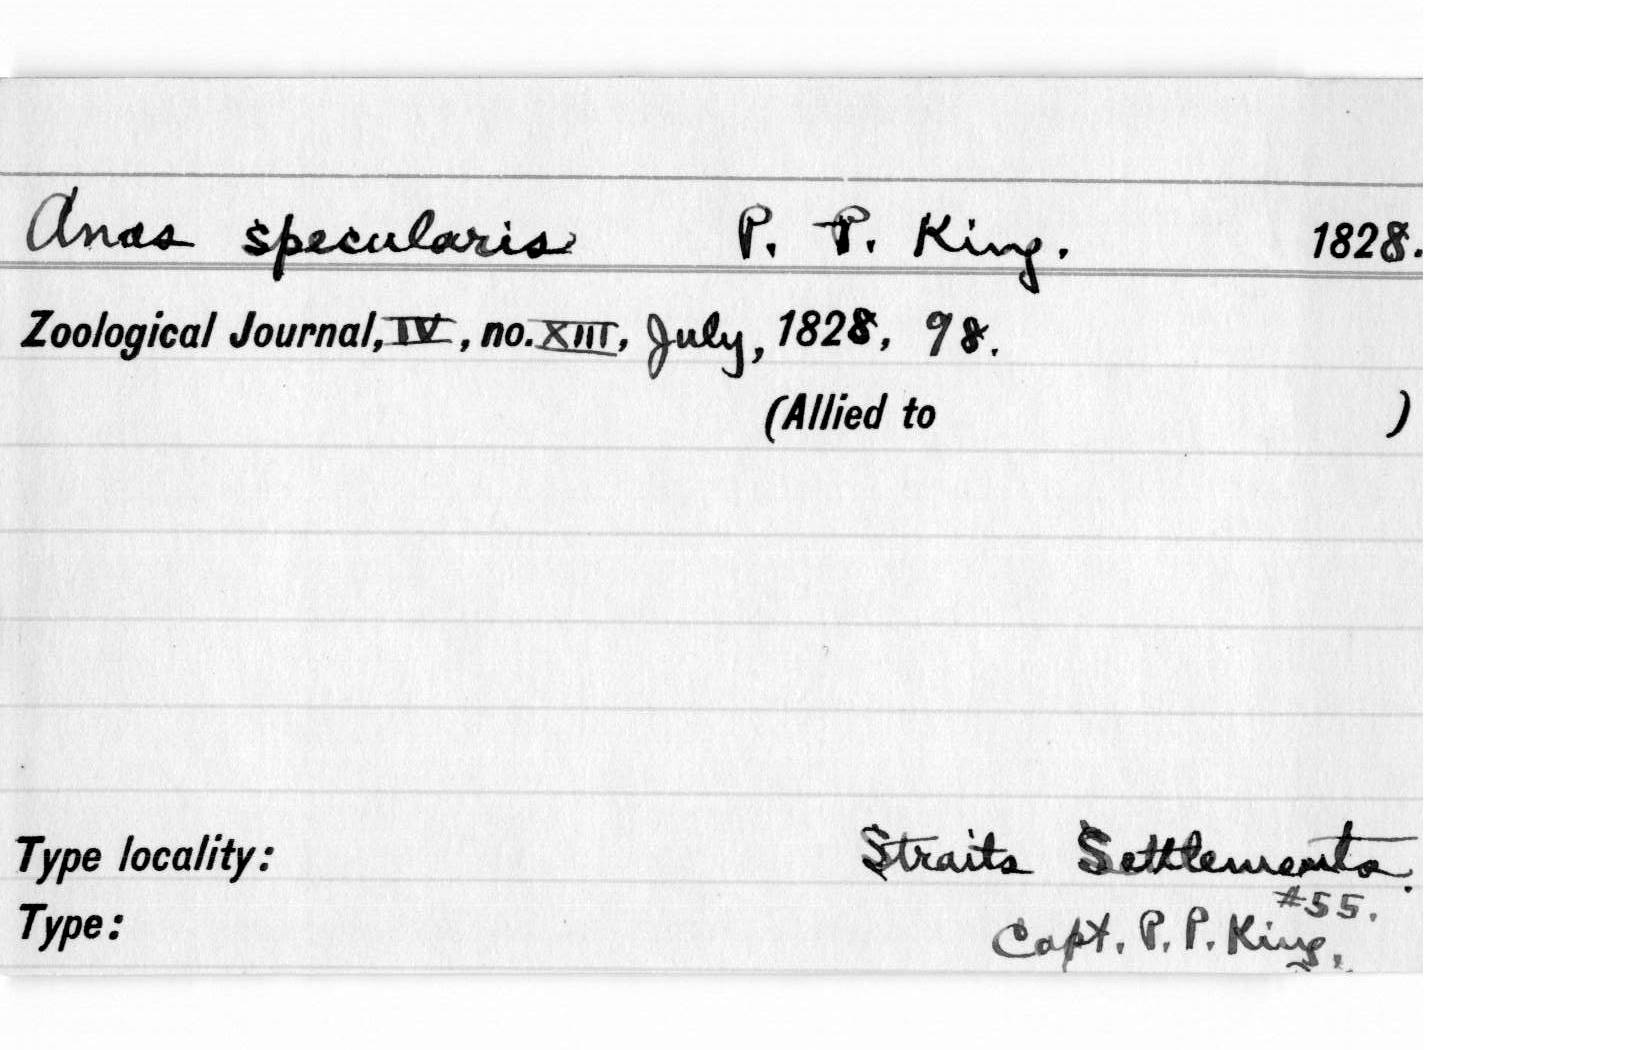 Anas specularis P. P. King. 1828.
Zoological Journal, IV, no. XIII, July, 1828, 98.
(Allied to )
Type locality: Straits Settlements.
#55.
Type: Capt. P. P. King.